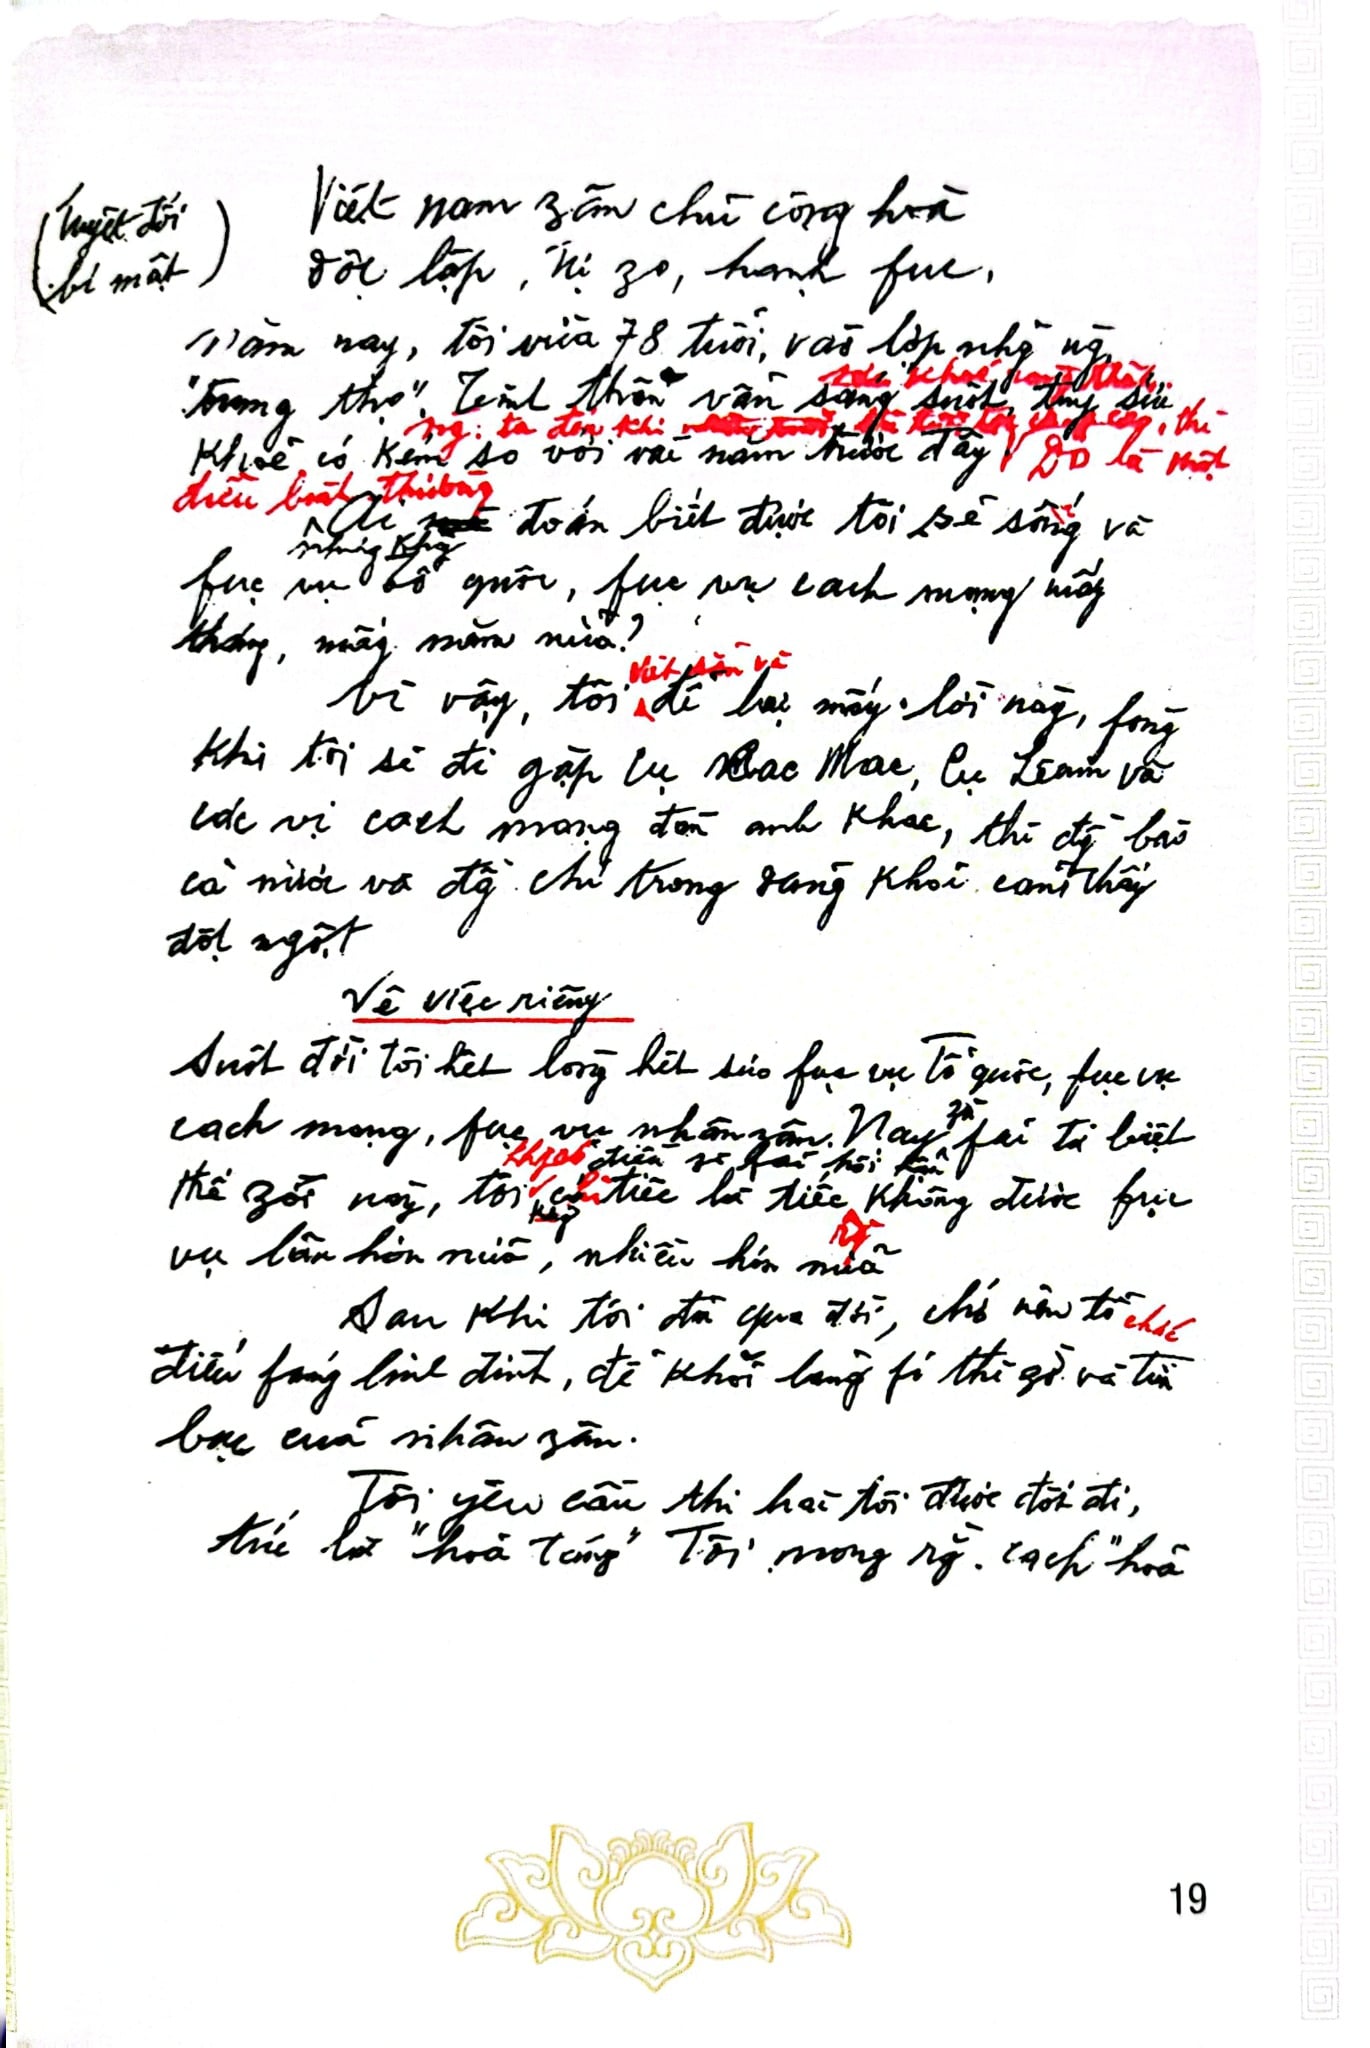 (tuyệt đối
bí mật)
Việt nam zân chủ cộng hoà
độc lập, tự zo, hạnh fúc.
Năm nay, tôi vừa 78 tuổi, vào lớp nhg ng.
"trung thọ". Tinh thần vẫn sáng suốt, tuy sức
khoẻ có kém so với vài năm trước đây
ng. ta đến khi thì
Đó là một
điều bình thường
Ai đoán biết được tôi sẽ sống và
nhưng khg
fục vụ tổ quốc, fục vụ cách mạng mấy
tháng, mấy năm nữa?
viết sẵn và
Vì vậy, tôi để lại mấy lời này, fòng
khi tôi sẽ đi gặp Cụ Cac Mac, Cụ Lênin và
các vị cách mạng đàn anh khác, thì đg bào
cả nước và đg chí trong Đảng khỏi cảm thấy
đột ngột
Về việc riêng
Suốt đời tôi hết lòng hết sức fục vụ Tổ quốc, fục vụ
cách mạng, fục vụ nhân zân. Nay zù fải từ biệt
khg có điều gì fải hối hận
thế zới này, tôi chỉ tiếc là tiếc không được fục
vụ lâu hơn nữa, nhiều hơn nữa
Sau khi tôi đã qua đời, chớ nên tổ chức
điếu fúng linh đình, để khỏi lãng fí thì zờ và tiền
bạc của nhân zân.
Tôi yêu cầu thi hài tôi được đốt đi,
tức là "hoả táng" Tôi mong rg. cách "hoả
19